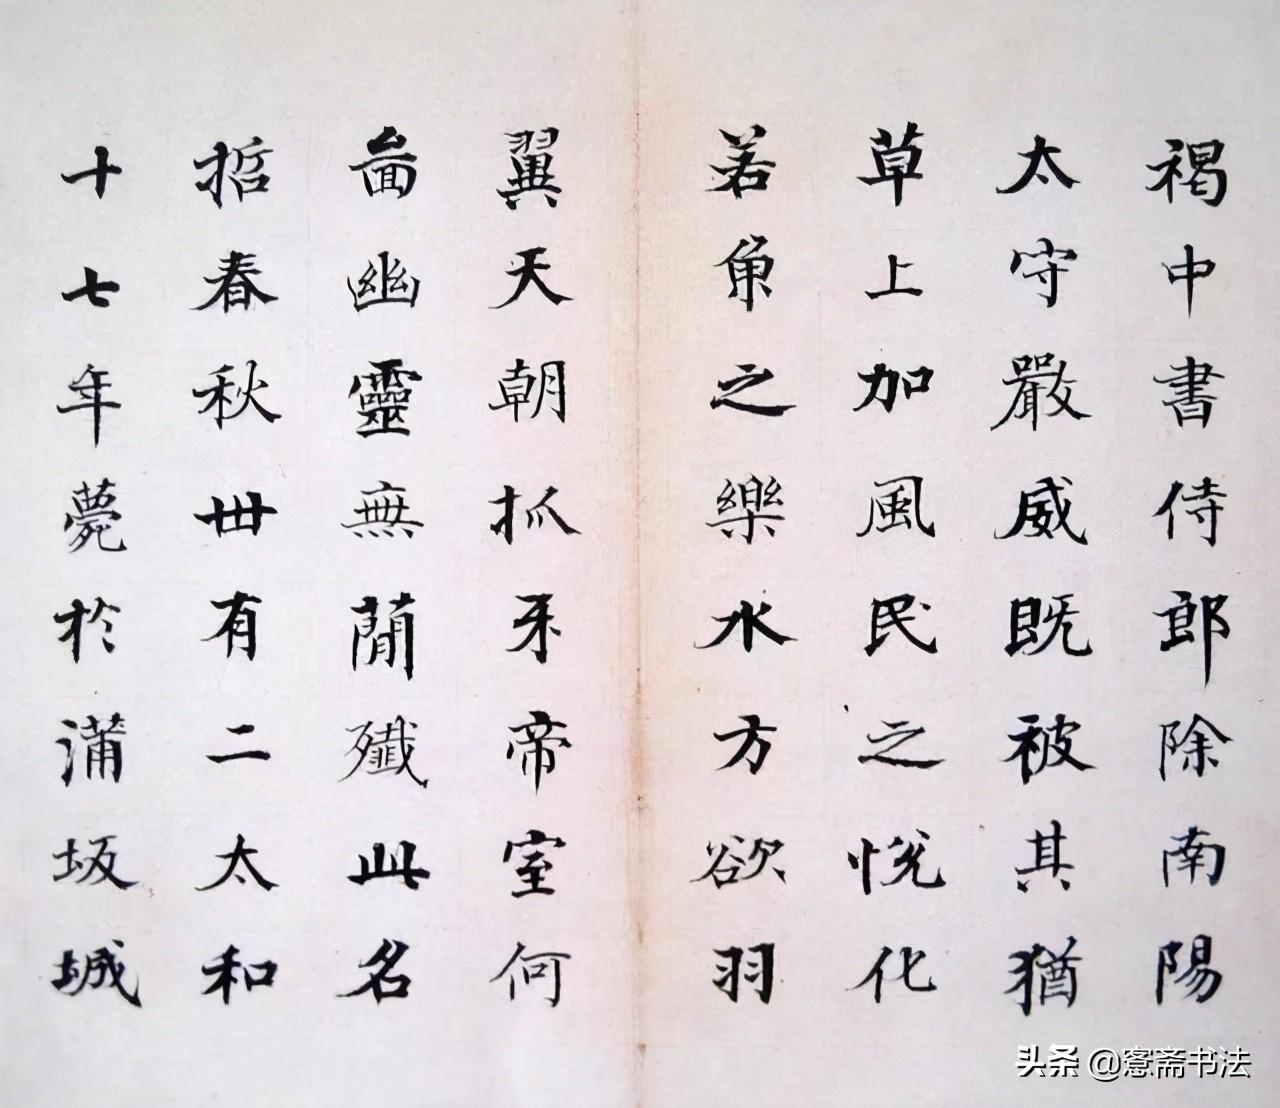 褐中書侍郎除南陽
太守嚴威既被其猶
草上加風民之悅化
若魚之樂水方欲羽
翼天朝抓牙帝室何
啚幽靈無簡殲此名
哲春秋卌有二太和
十七年薨於蒲坂城
头条 @窓斋书法